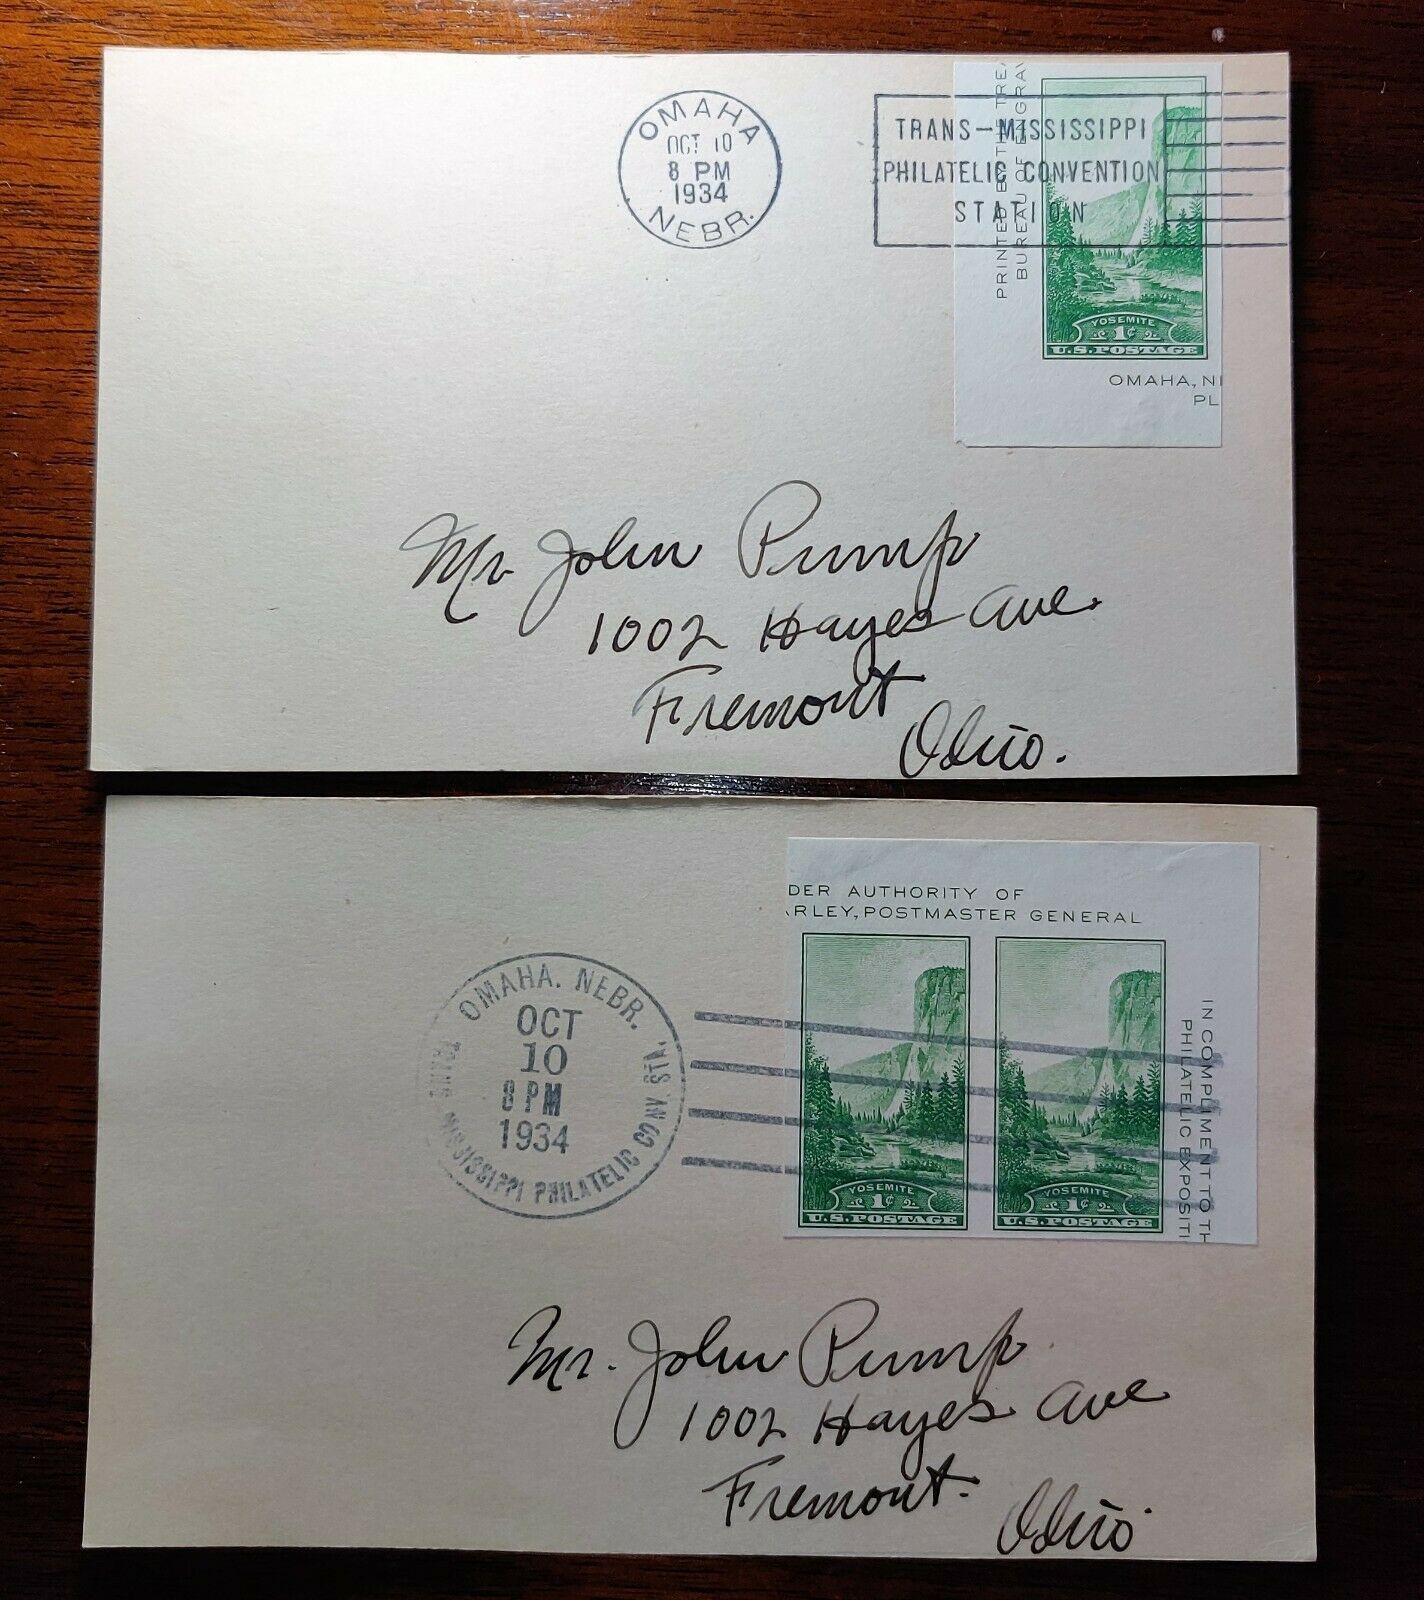 OMAHA
OCT 10
8 PM
1934
NEBR.
TRANS-MISSISSIPPI
PHILATELIC CONVENTION
STATION
PRINTED BY THE TREA
BUREAU OF ENGRAV
YOSEMITE
1¢
U.S. POSTAGE
OMAHA, NE
PL
Mr John Pump
1002 Hayes Ave.
Fremont
Ohio.
DER AUTHORITY OF
ARLEY, POSTMASTER GENERAL
OMAHA. NEBR.
OCT
10
8 PM
1934
MISSISSIPPI PHILATELIC CONV. STA.
YOSEMITE
1¢
U.S. POSTAGE
YOSEMITE
1¢
U.S. POSTAGE
IN COMPLIMENT TO TH
PHILATELIC EXPOSITI
Mr. John Pump
1002 Hayes Ave
Fremont.
Ohio